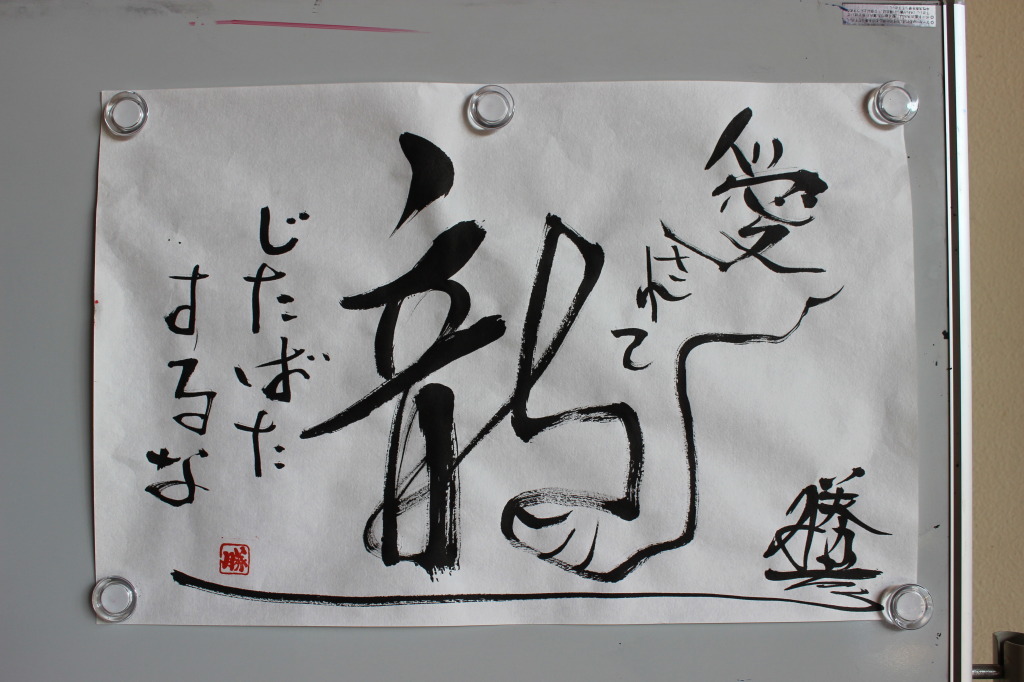 愛
されて
龍
じたばた
するな
勝
勝